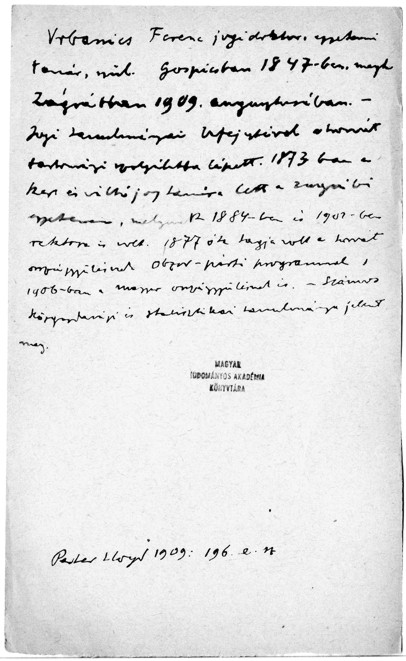 Vrbanics Ferenc jogi doktor, egyetemi
tanár, szül. Gospicsban 1847-ben, megh.
Zágrábban 1909. augusztusában. –
Jogi tanulmányai befejeztével a horvát
tartományi szolgálatba lépett. 1873 ban a
ker. és váltójog tanára lett a zágrábi
egyetemen, melynek 1884-ben és 1901-ben
rektora is volt. 1877 óta tagja volt a horvát
országgyűlésnek Obzor-párti programmal,
1906-ban a magyar országgyűlésnek is. – Számos
közgazdasági és statisztikai tanulmánya jelent
meg.
MAGYAR
TUDOMÁNYOS AKADÉMIA
KÖNYVTÁRA
Pester Lloyd 1909: 196. e. sz